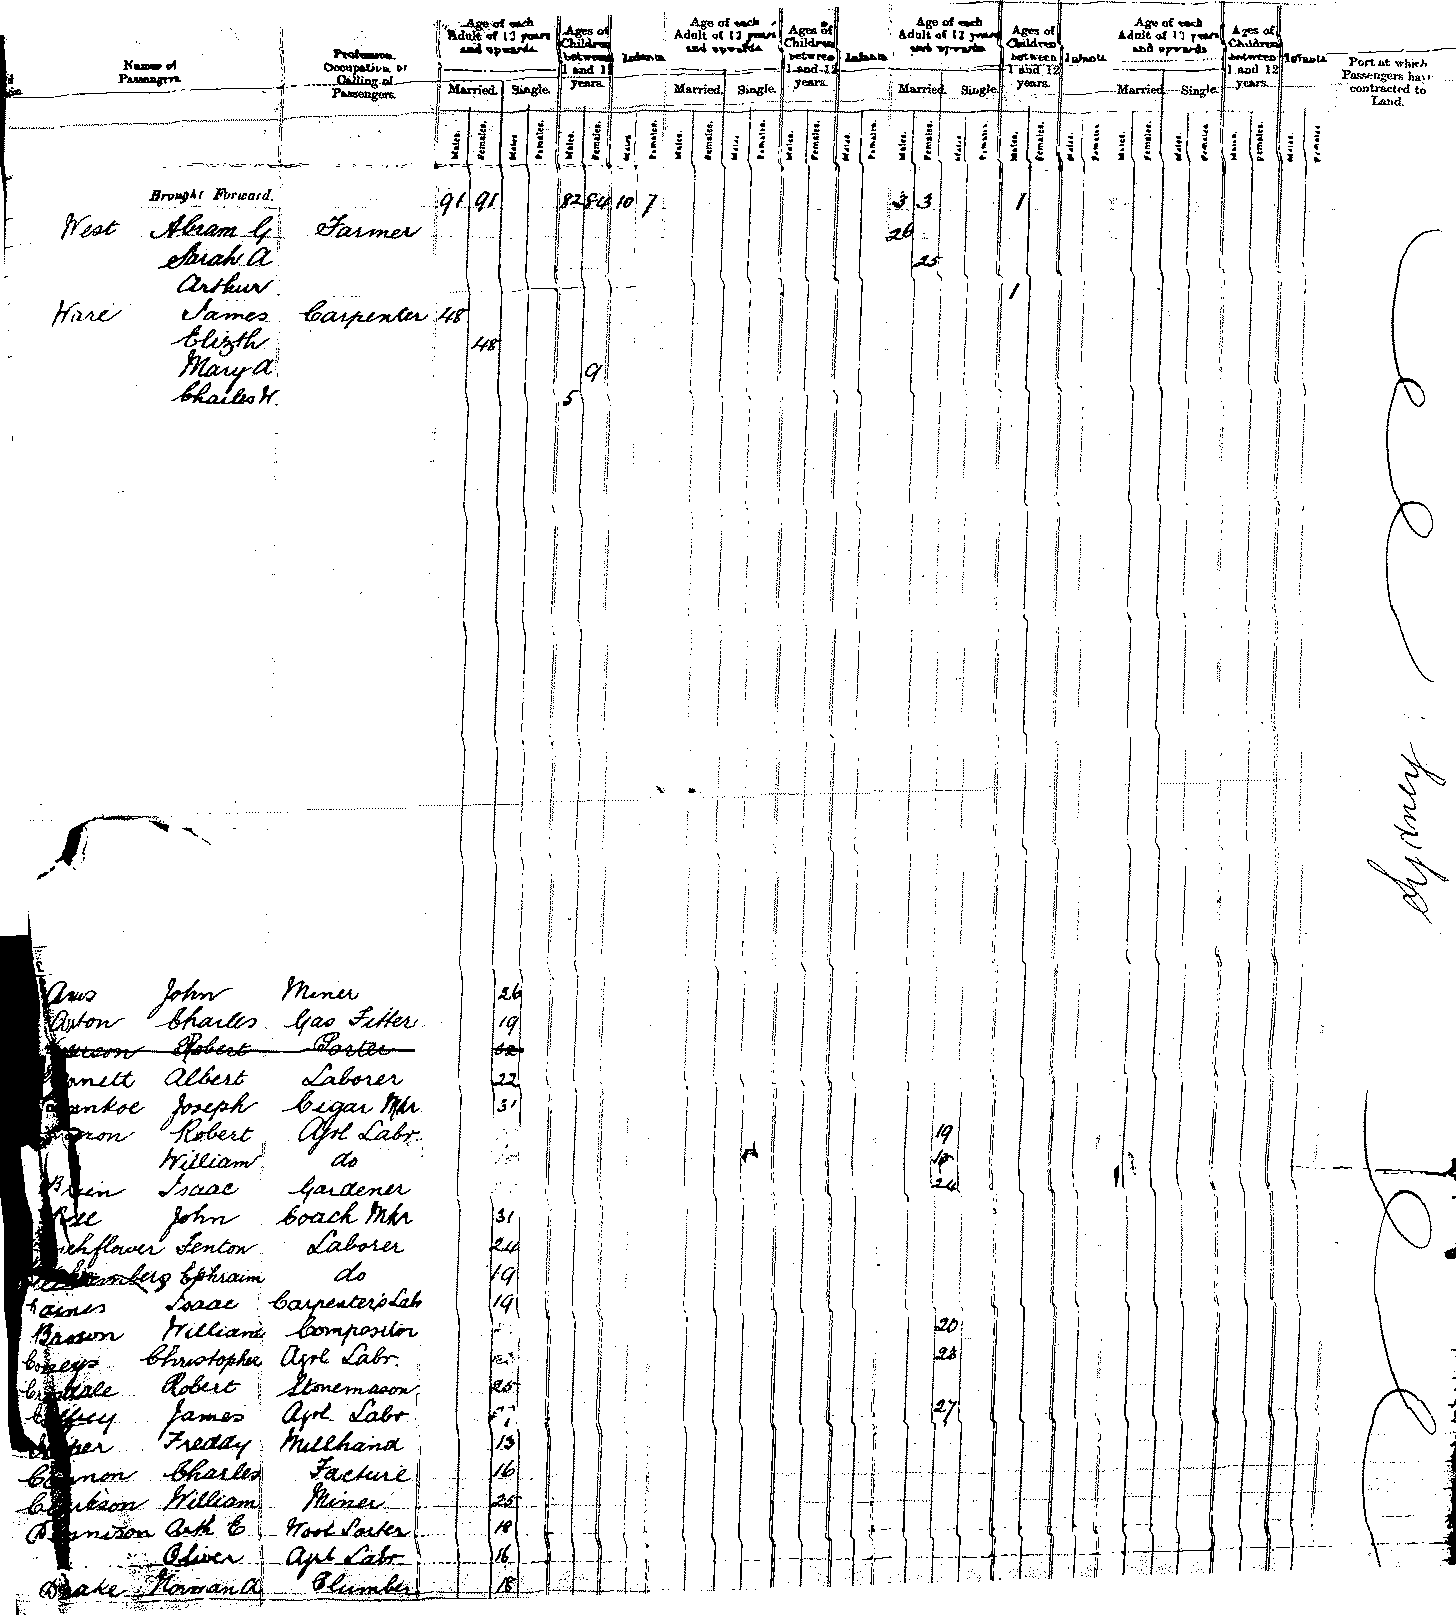 Names of Passengers. Profession Occupation or Calling of Passengers. Age of each Adult of 12 years and upwards Ages of Children between 1 and 12 years. Infants Age of each Adult of 12 years and upwards Ages of Children between 1 and 12 years. Infants Age of each Adult of 12 years and upwards Ages of Children between 1 and 12 years. Infants Age of each Adult of 12 years and upwards Ages of Children between 1 and 12 years. Infants Port at which Passengers have contracted to Land.
Married. Single. Married. Single. Married. Single. Married. Single.
Males. Females. Males. Females. Males. Females. Males. Females. Males. Females. Males. Females. Males. Females. Males. Females. Males. Females. Males. Females. Males. Females. Males. Females. Males. Females. Males. Females. Males. Females. Males. Females.
Brought Forward. 91 91 82 84 10 7 3 3 1
West Abram G Farmer 26
Sarah A 25
Arthur 1
Ware James Carpenter 48
Elizth 48
Mary A 9
Charles W. 5
Sydney
John Miner 26
Charles Gas Fitter 19
Robert Porter
Albert Laborer 22
Joseph Cigar Mkr 31
Robert Agrl Labr. 19
William do
Isaac Gardener 24
John Coach Mkr 31
Fenton Laborer 24
Ephraim do 19
Isaac Carpenter's Lab 19
Brown William Compositor 20
Christopher Agrl Labr. 23
Robert Stonemason 25
James Agrl Labr 27
Freddy Millhand 13
Charles Facture 16
Clarkson William Miner 25
Dennison Arth E Wool Sorter 18
Oliver Agrl Labr 16
Drake Norman A Plumber 18